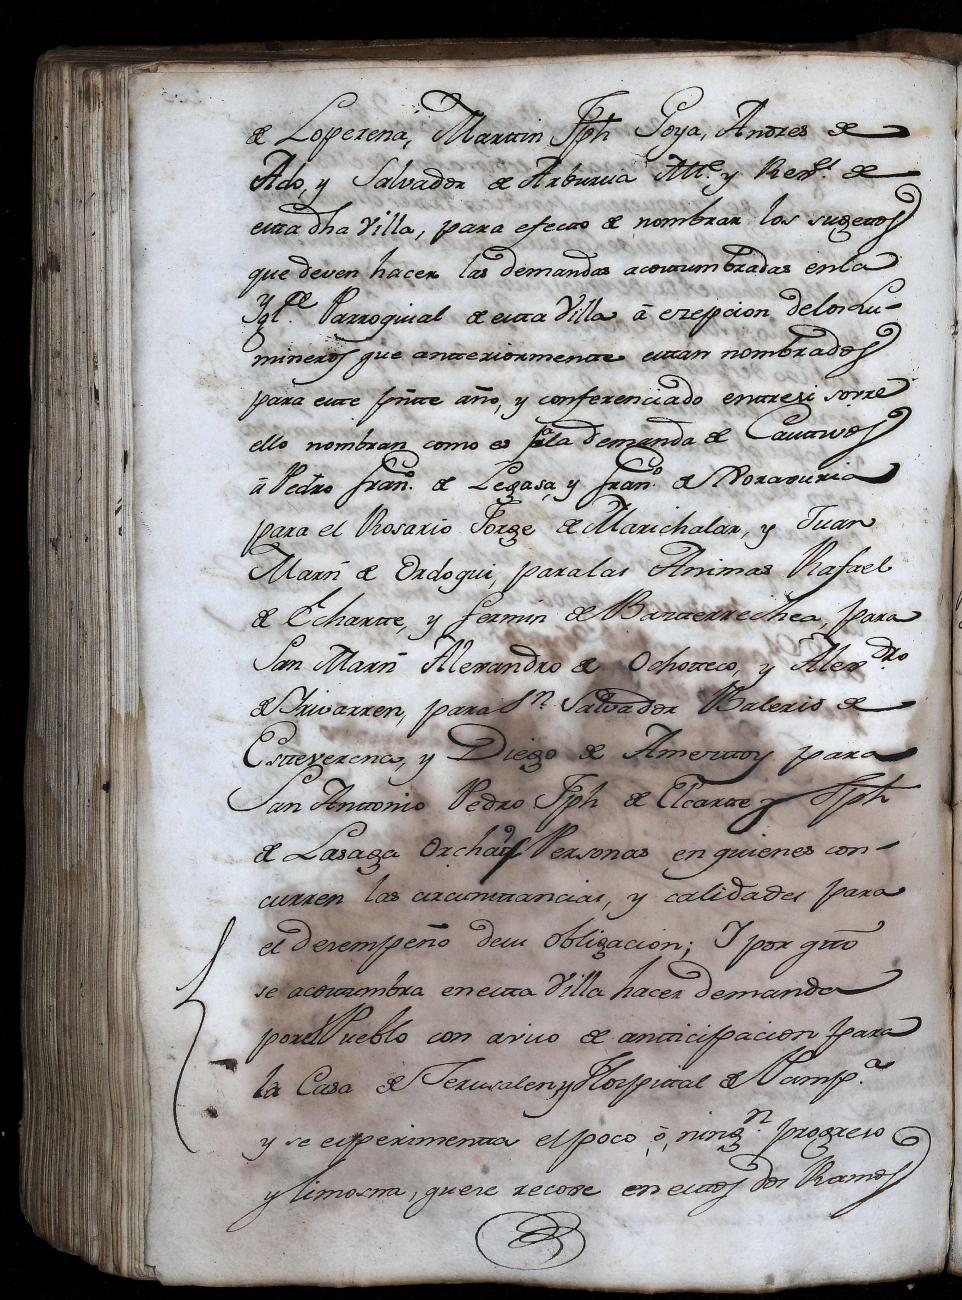 de Loperena, Martin Jph Goya, Andres de
Ado, y Salvador de Arburua Alt.e y Rex.s de
esta dha Villa, para efecto de nombrar los sugettos
que deven hacer las demandas acostumbradas enla
Ygl.a Parroquial de esta Villa â exepcion delos Lu-
mineros que anteriormente estan nombrados
para este pnte año, y conferenciado entresi sovre
ello nombran como es pa la demanda de Cautivos
â Pedro Fran.co de Legasa, y Fran.co de
para el Rosario Jorge de Marichalar, y Juan
Marn de Ordoqui, paralas Animas Rafael
de Echarte, y Fermin de Banterrechea, para
San Marn Alexandro de Ochoteco, y Alex.dro
de Trivarren, para Sn Salvador Valerio de
Esteverena, y Diego de Ameztoy para
San Antonio Pedro Jph de Elcarte y Jph
de Lasaga Personas en quienes con-
curren las circunstancias, y calidades para
el desempeño desu obligacion; Y por qto
se acostumbra enesta Villa hacer demanda
porel Pueblo con aviso de anticipacion para
la Casa de Jerusalen, y Hospital de Pamp.a
y se experimenta el poco, ô, ning.n progreso
y limosna, quese recoje en estos dos Ramos